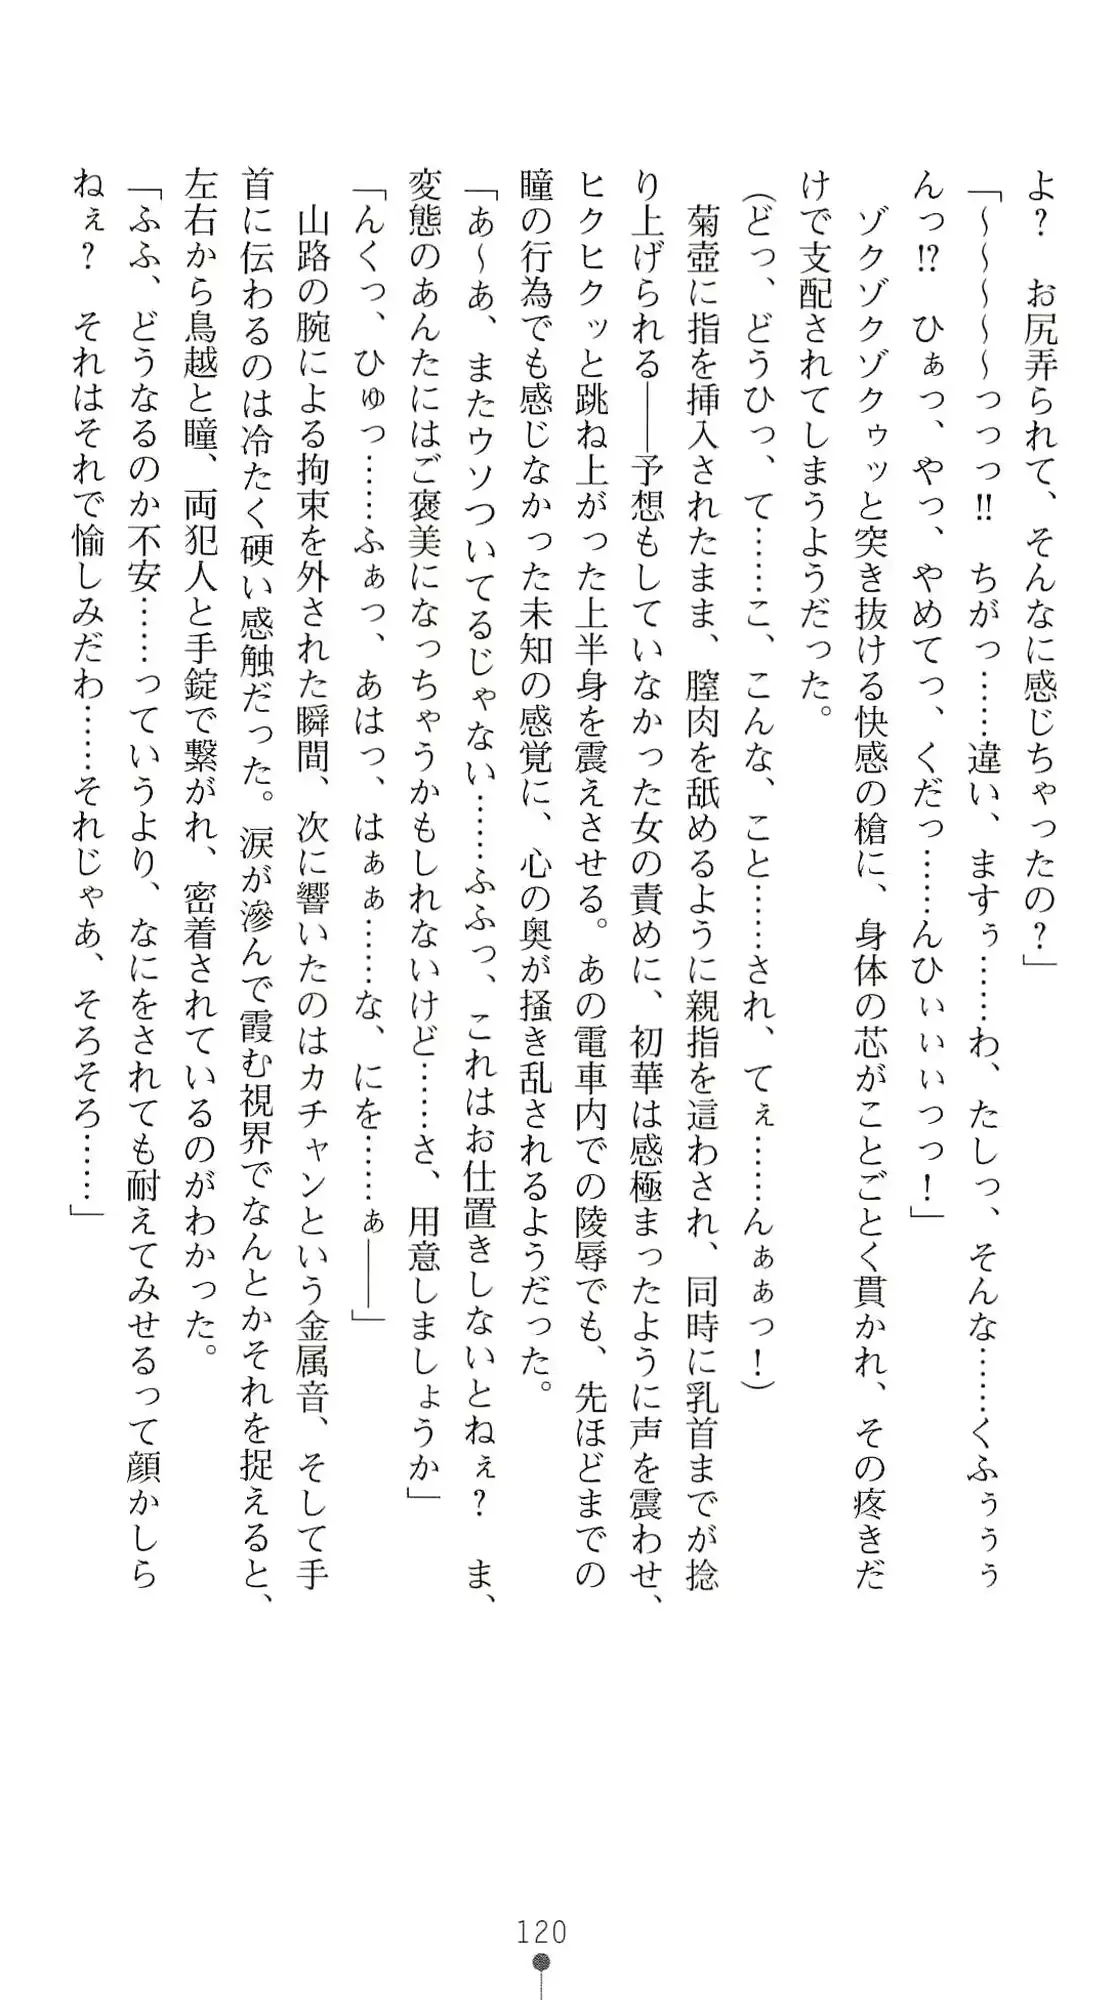 よ？　お尻弄られて、そんなに感じちゃったの？」
「～～～～っっっ!!　ちがっ……違い、ますぅ……わ、たしっ、そんな……くふぅぅぅ
んっ!?　ひぁっ、やっ、やめてっ、くだっ……んひぃぃぃっっ！」
　ゾクゾクゾクゥッと突き抜ける快感の槍に、身体の芯がことごとく貫かれ、その疼きだ
けで支配されてしまうようだった。
（どっ、どうひっ、て……こ、こんな、こと……され、てぇ……んぁぁっ！）
　菊壺に指を挿入されたまま、膣肉を舐めるように親指を這わされ、同時に乳首までが捻
り上げられる――予想もしていなかった女の責めに、初華は感極まったように声を震わせ、
ヒクヒクッと跳ね上がった上半身を震えさせる。あの電車内での陵辱でも、先ほどまでの
瞳の行為でも感じなかった未知の感覚に、心の奥が掻き乱されるようだった。
「あ～あ、またウソついてるじゃない……ふふっ、これはお仕置きしないとねぇ？　ま、
変態のあんたにはご褒美になっちゃうかもしれないけど……さ、用意しましょうか」
「んくっ、ひゅっ……ふぁっ、あはっ、はぁぁ……な、にを……ぁ――」
　山路の腕による拘束を外された瞬間、次に響いたのはカチャンという金属音、そして手
首に伝わるのは冷たく硬い感触だった。涙が滲んで霞む視界でなんとかそれを捉えると、
左右から鳥越と瞳、両犯人と手錠で繋がれ、密着されているのがわかった。
「ふふ、どうなるのか不安……っていうより、なにをされても耐えてみせるって顔かしら
ねぇ？　それはそれで愉しみだわ……それじゃあ、そろそろ……」
120